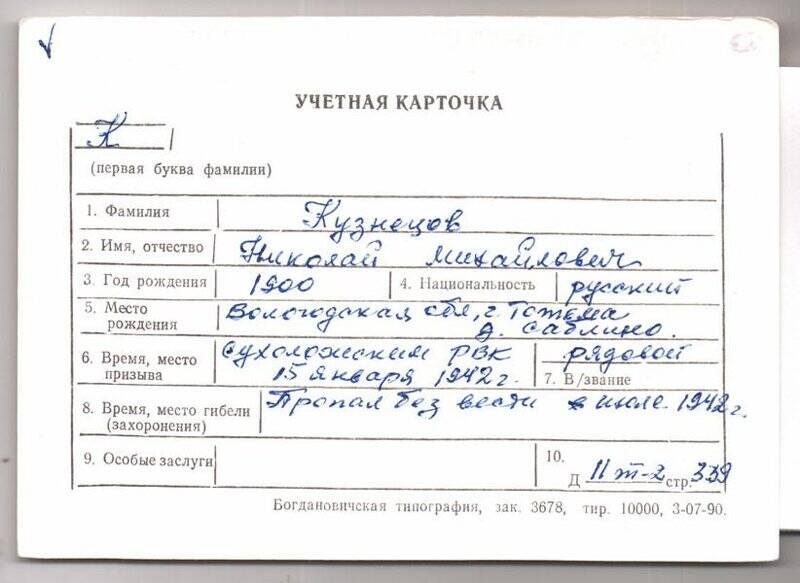 УЧЕТНАЯ КАРТОЧКА
К
(первая буква фамилии)
1. Фамилия Кузнецов
2. Имя, отчество Николай Михайлович
3. Год рождения 1900 4. Национальность русский
5. Место рождения Вологодская обл, г. Тотьма
д. Саблино.
6. Время, место призыва Сухоложским РВК
15 января 1942 г.
рядовой
7. В/звание
8. Время, место гибели (захоронения) Пропал без вести в июле 1942 г.
9. Особые заслуги
10.
Д 11 т-2 стр. 339
Богдановичская типография, зак. 3678, тир. 10000, 3-07-90.